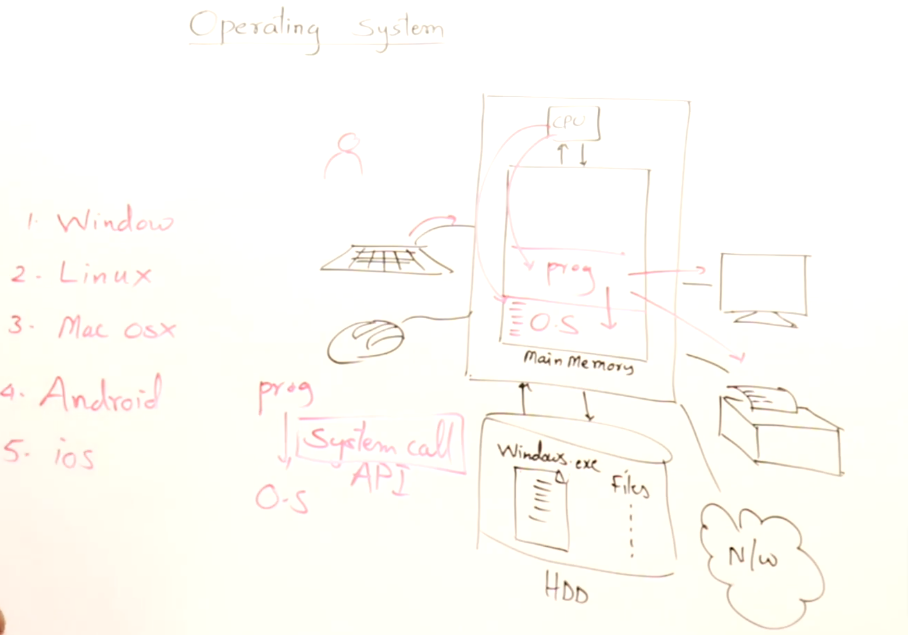 Operating System
CPU
1. Window
2. Linux
3. Mac osx
4. Android
5. ios
prog
O.S
Main Memory
prog
System call
API
O.S
Windows.exe
Files
HDD
N/w